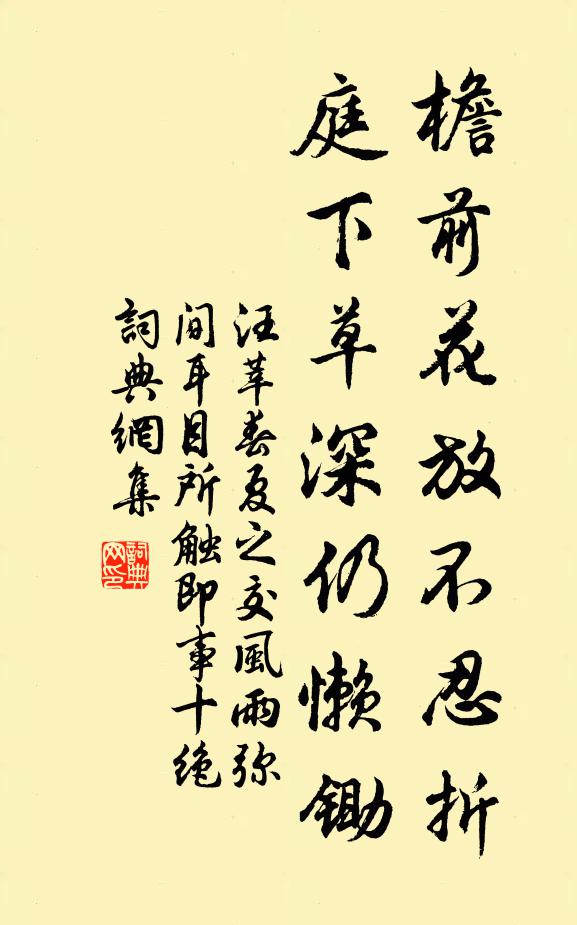 檐前花放不忍折
庭下草深仍懒锄
汪莘春夏之交風雨弥
间耳目所触即事十绝
詞典網集
詞典
网印